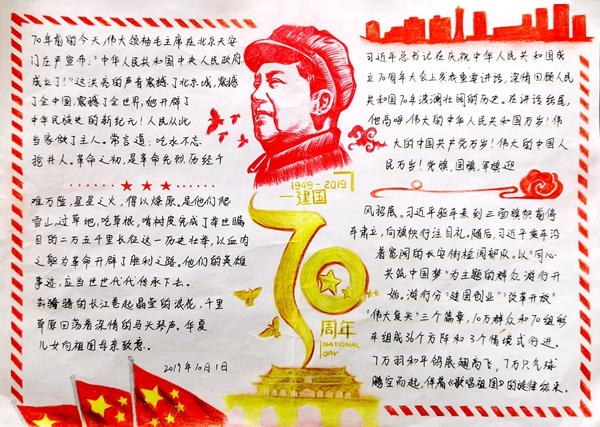 70年前的今天,伟大领袖毛主席在北京天安
门庄严宣布:"中华人民共和国中央人民政府
成立了!"这洪亮的声音震撼了北京城,震撼
了全中国,震撼了全世界,他开辟了
中华民族史的新纪元!人民从此
当家做了主人。常言道:吃水不忘
挖井人。革命之初,是革命先烈历经千
难万险,星星之火,得以燎原,是他们爬
雪山,过草地,吃草根,啃树皮完成了举世瞩
目的二万五千里长征这一历史壮举,以血肉
之躯为革命开辟了胜利之路。他们的英雄
事迹,应当世世代代传承下去。
奔腾的长江卷起晶莹的浪花,千里
草原回荡着深情的马头琴声。华夏
儿女向祖国母亲致意。
2019年10月1日
1949-2019
建国
70
周年
NATIONAL
DAY
习近平总书记在庆祝中华人民共和国成
立70周年大会上发表重要讲话,深情回顾人民
共和国70年波澜壮阔的历史。在讲话结尾,
他高呼:伟大的中华人民共和国万岁!伟
大的中国共产党万岁!伟大的中国人
民万岁!党旗,国旗,军旗迎
风招展。习近平驱车来到三面旗帜前停
车肃立,向旗帜行注目礼。随后,习近平乘车沿
着宽阔的长安街检阅部队。以"同心
共筑中国梦"为主题的群众游行开
始。游行分"建国创业""改革开放"
"伟大复兴"三个篇章,10万群众和70组彩
车组成36个方阵和3个情境式行进。
7万羽和平鸽展翅高飞,7万只气球
腾空而起,伴着《歌唱祖国》的旋律结束。